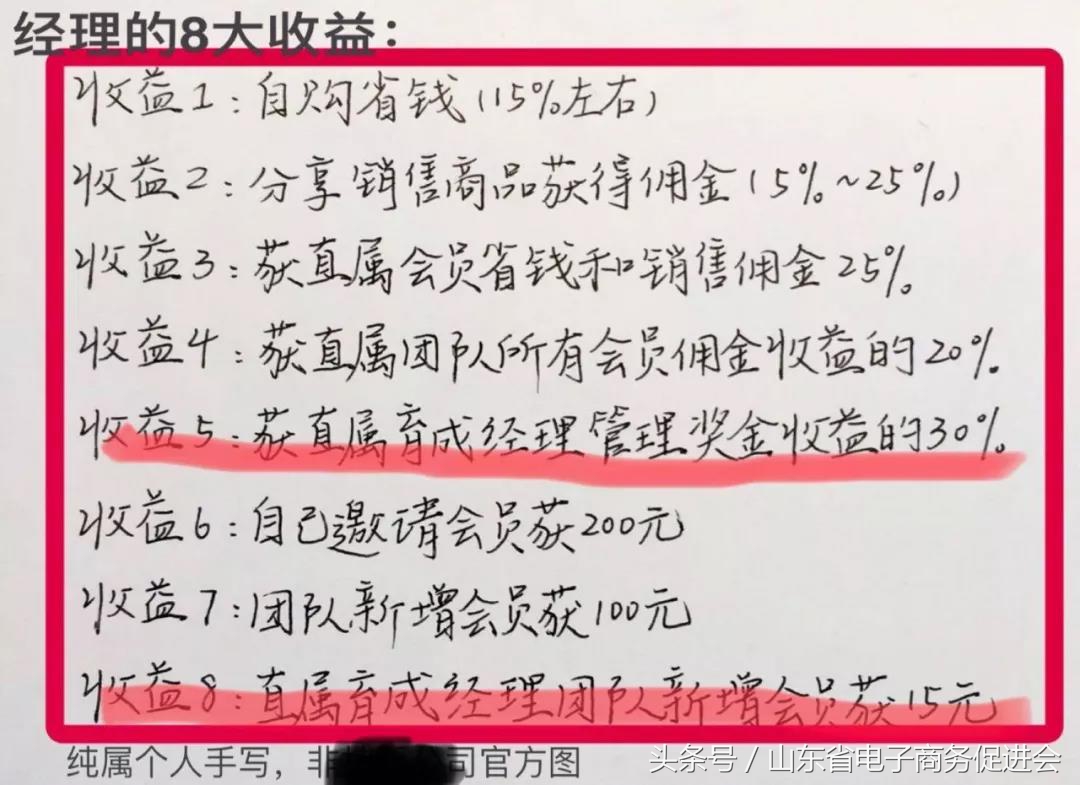 经理的8大收益：
收益1：自购省钱（15%左右）
收益2：分享销售商品获得佣金（5%~25%）
收益3：获直属会员省钱和销售佣金25%.
收益4：获直属团队所有会员佣金收益的20%.
收益5：获直属育成经理管理奖金收益的30%.
收益6：自己邀请会员获200元
收益7：团队新增会员获100元
收益8：直属育成经理团队新增会员获15元
纯属个人手写，非 司官方图
头条号 / 山东省电子商务促进会